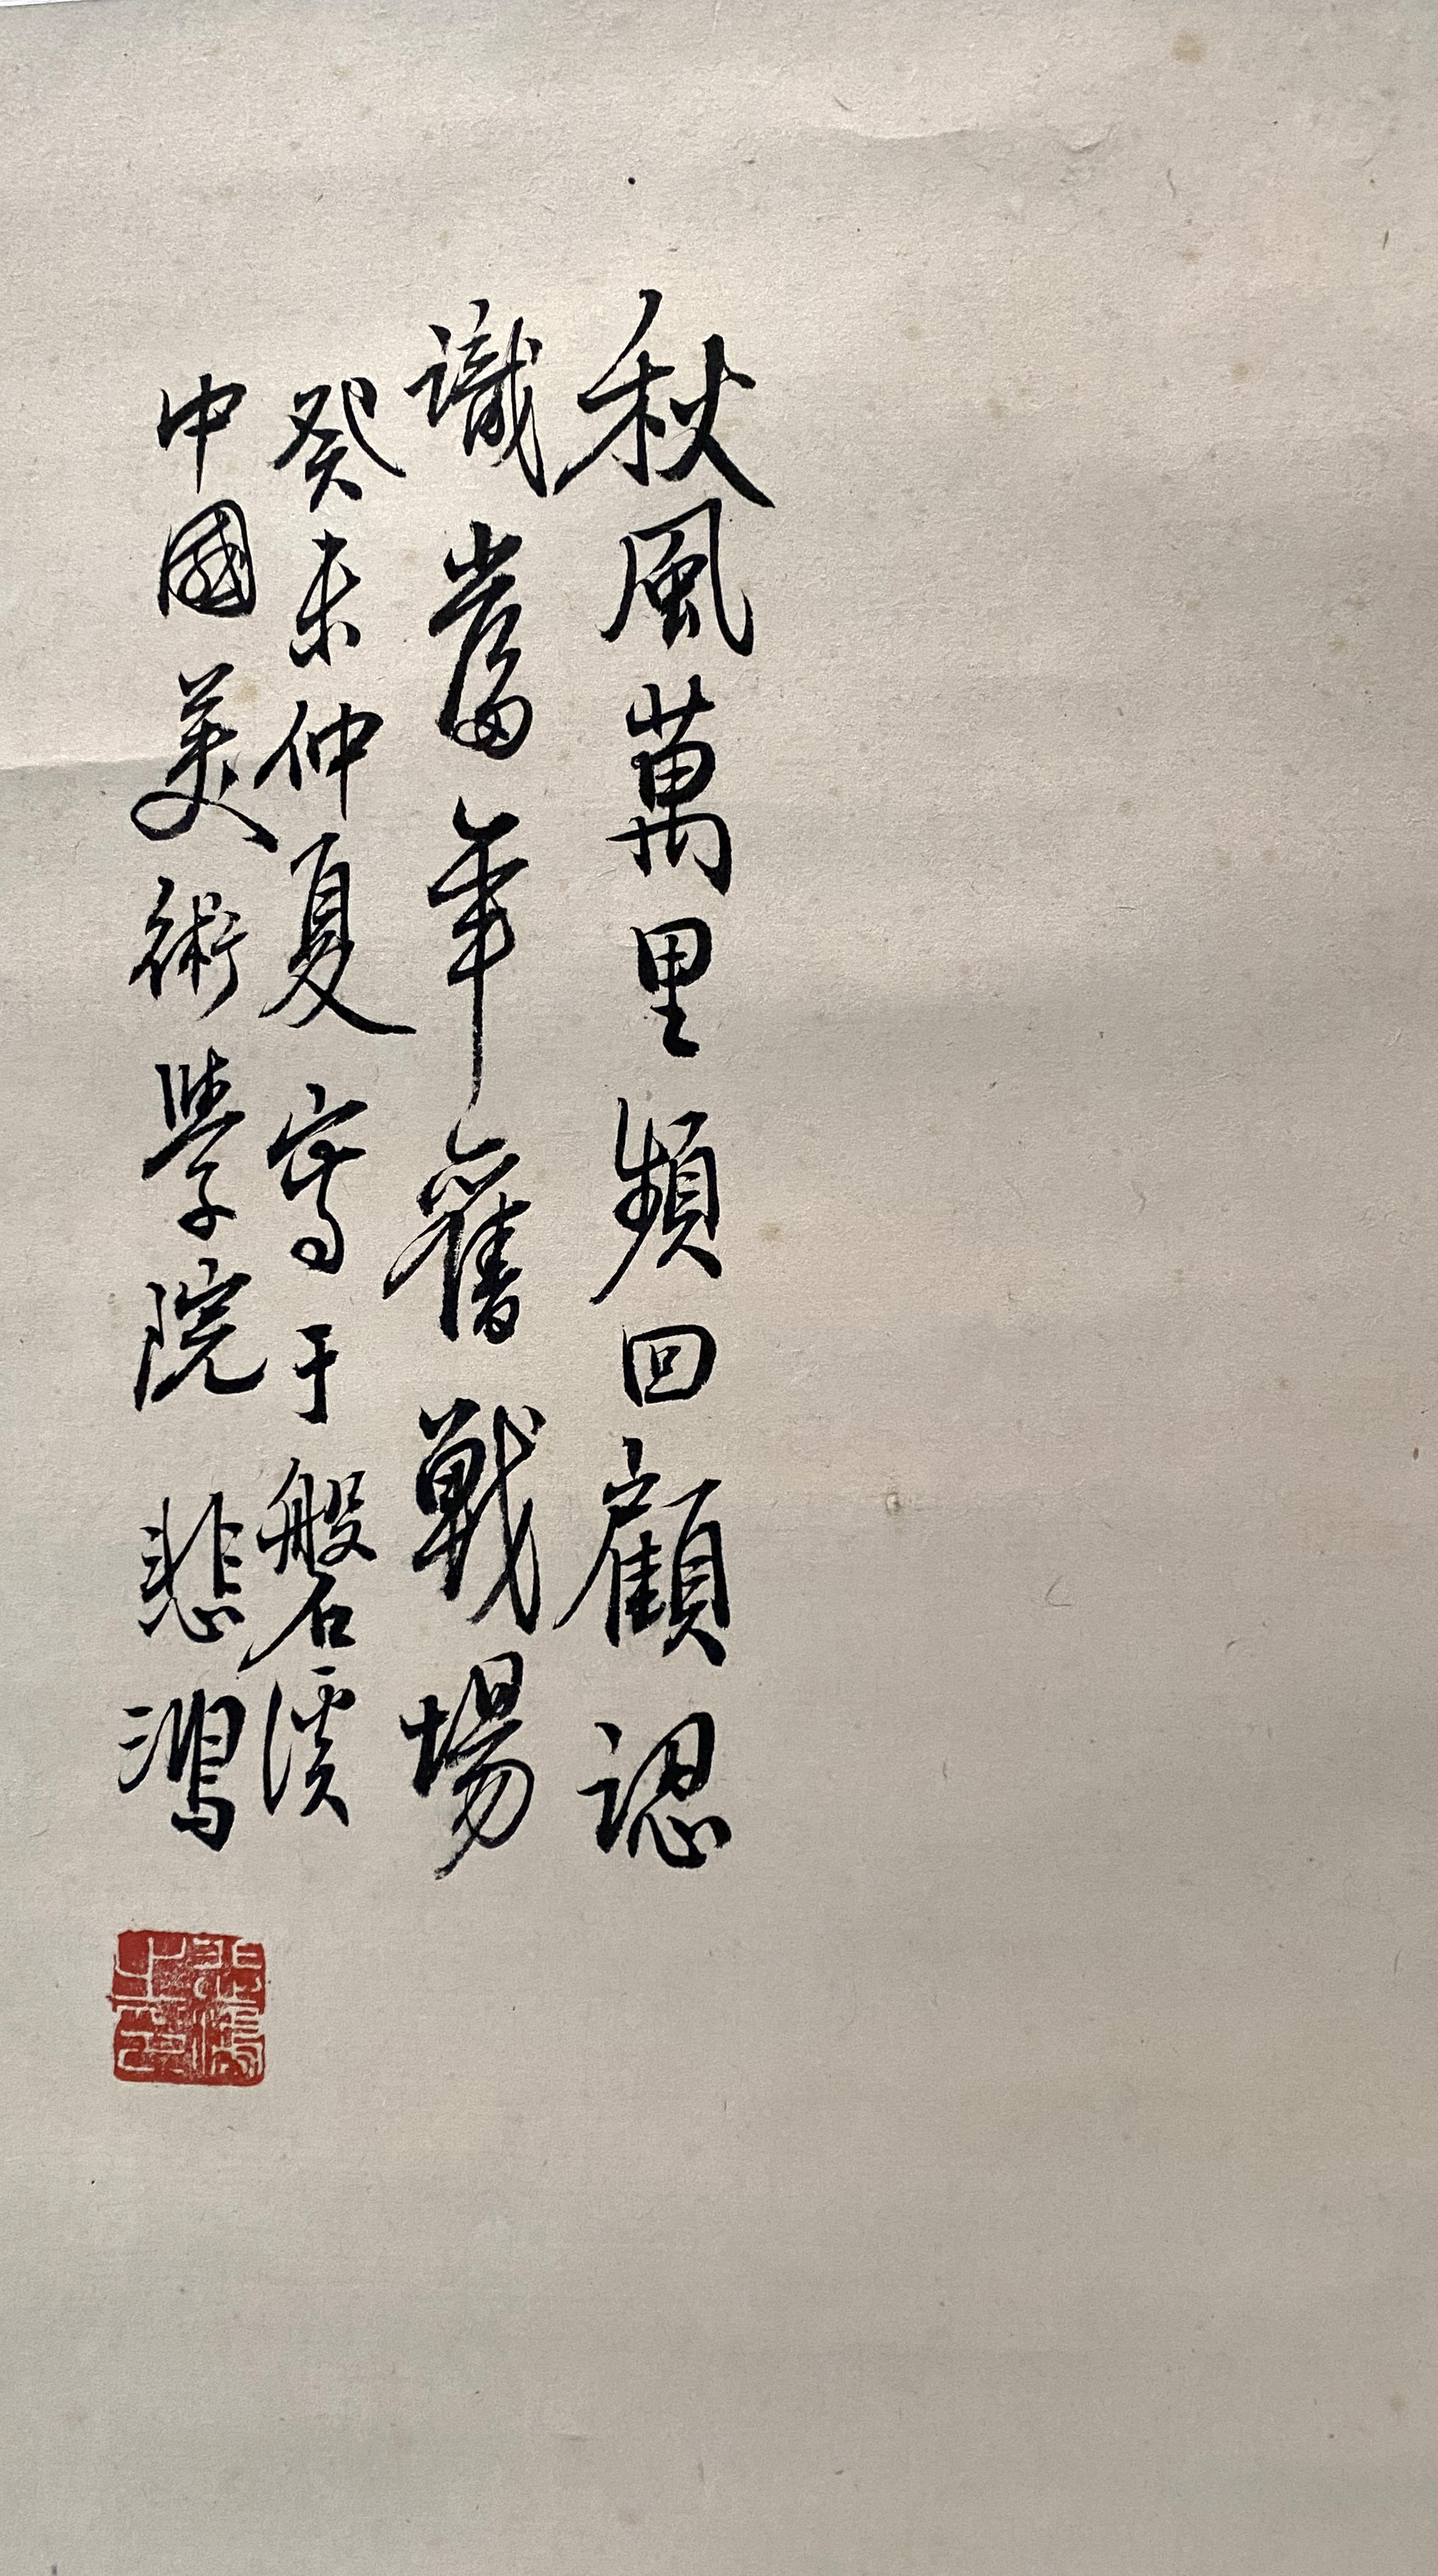 秋風萬里頻回顧認
識當年舊戰場
癸未仲夏寫于磐溪
中國美術學院 悲鴻
悲鴻之印